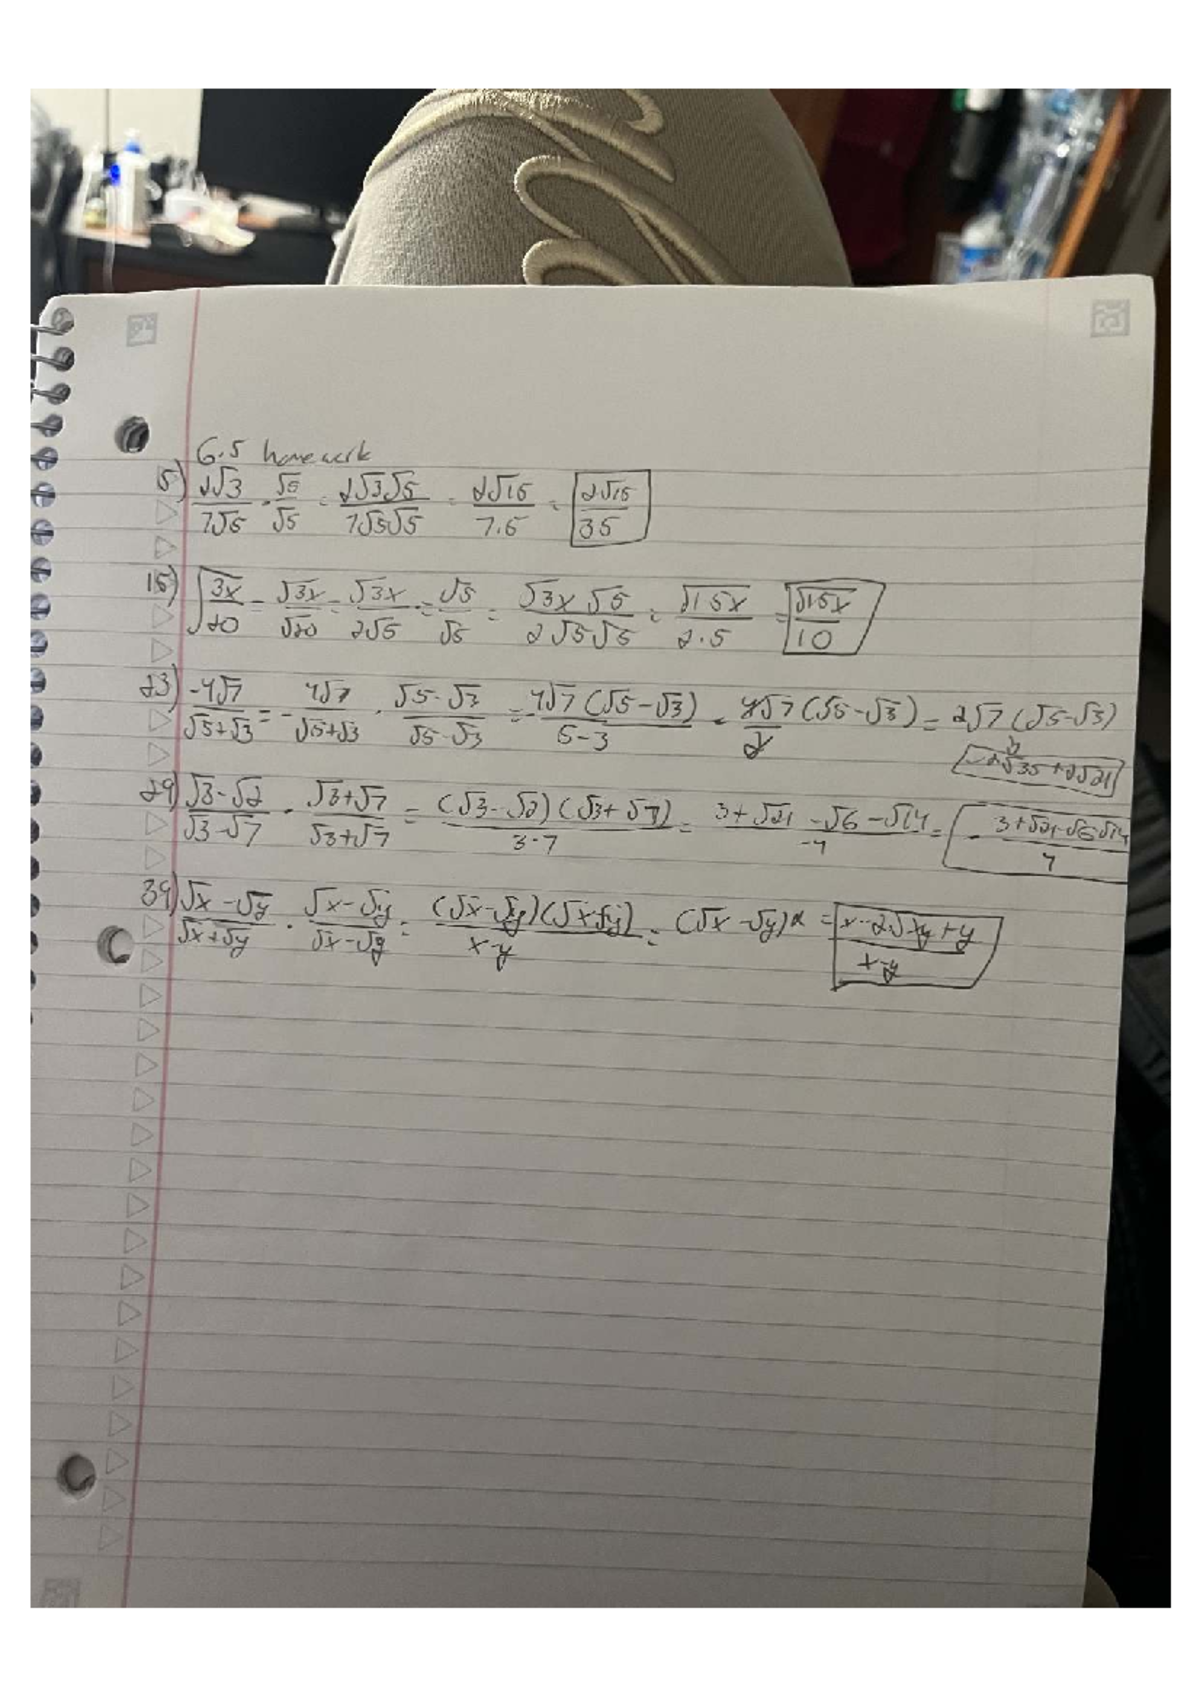 6.5 homework
5) 2√3/7√5 · √5/√5 = 2√3√5/7√5√5 = 2√15/7·5 = 2√15/35
15) √3x/20 = √3x/√20 = √3x/2√5 · √5/√5 = √3x √5/2√5√5 = √15x/2·5 = √15x/10
23) -4√7/√5+√3 = - 4√7/√5+√3 · √5-√3/√5-√3 = -4√7(√5-√3)/5-3 = 4√7(√5-√3)/2 = 2√7(√5-√3)
-2√35+2√21
29) √3-√2/√3-√7 · √3+√7/√3+√7 = (√3-√2)(√3+√7)/3-7 = 3+√21-√6-√14/-4 = - 3+√21-√6-√14/4
39) √x-√y/√x+√y · √x-√y/√x-√y = (√x-√y)(√x-√y)/x-y = (√x-√y)2 = x-2√xy+y/x-y